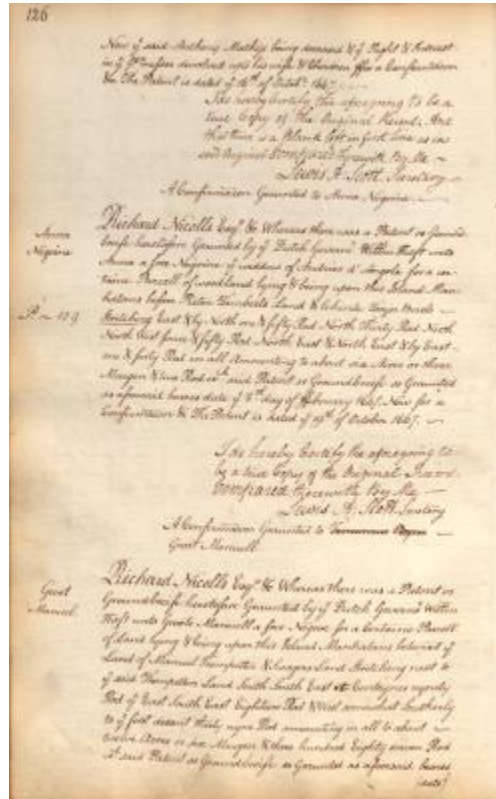 126
Now ye said Anthony Mathys being deceased & ye Right & Interest
in ye Premisses devolved upon his wife & Children &c for a Confirmation
&c The Patent is dated ye 16th of Octobr 1667.
I do hereby Certify the aforegoing to be a
true Copy of the Original Record. And
that there is a Blank left in first line as in
said Original Compared therewith By Me
Lewis A. Scott Secretary
A Confirmacon Graunted to Anna Negroine
Anna
Negroine
Richard Nicolls Esqr &c Whereas there was a Patent or Ground
briefe heretofore Graunted by ye Dutch Governr William Kieft unto
Anna a free Negroine ye widdow of Andries d' Angola for a cer
taine Parcell of woodland lying & being upon this Island Man
hatans before Pieter Tambiens Land & behinde
Stretching East & by North one & fifty Rod North Thirty Rod North
North West four & fifty Rod North East & North East & by East
one & forty Rod in all Amounting to about six Acres or three
Morgen & Rod wch said Patent or Groundbriefe so Graunted
as aforesaid beares date ye 8th day of February 1647. Now for a
Confirmation &c The Patent is dated ye 19th of October 1667.
I do hereby Certify the aforegoing to
be a true Copy of the Original Record
Compared therewith By Me
Lewis A. Scott Secretary
A Confirmacon Graunted to
Great Manuell
Great
Manuel
Richard Nicolls Esqr &c Whereas there was a Patent or
Groundbriefe heretofore Graunted by ye Dutch Governr William
Kieft unto Groote Manuell a free Negroe for a Certaine Parcell
of Land lying & being upon this Island Manhatans betwixt ye
Land of Manuel Trumpetter & Land Stretching next to
ye said Trumpetters Land South South East Contaynes
Rod ye East South East Eighteen Rod & West somewhat Southerly
to ye first descent thirty nyne Rod amounting in all to about
twelve Acres or six Morgen & three hundred Eighty seaven Rod
wch said Patent or Groundbriefe so Graunted as aforesaid beares
date